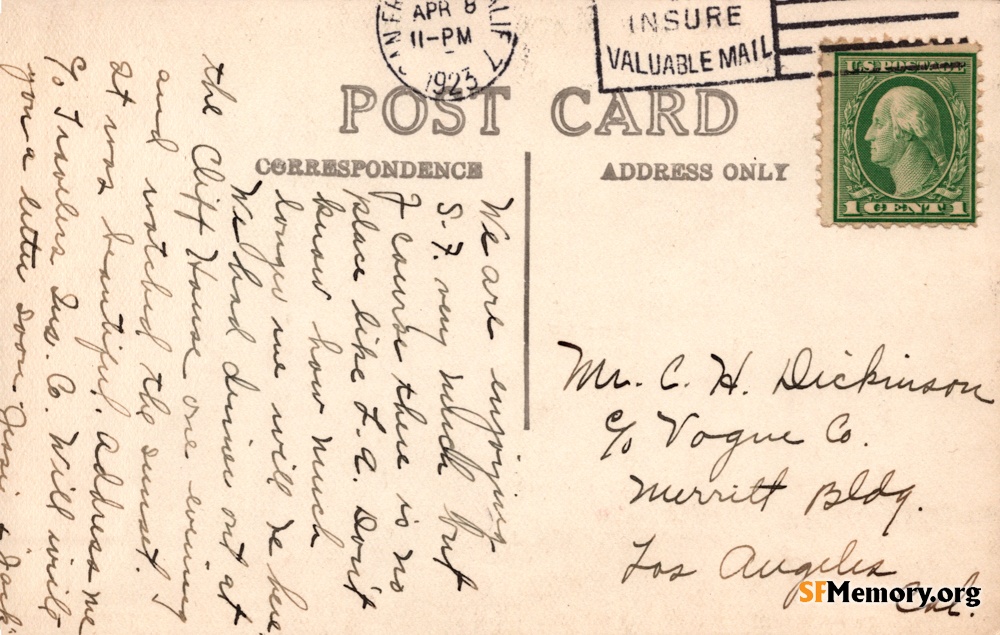 APR 8
11-PM
1923
CALIF
INSURE
VALUABLE MAIL
U.S. POSTAGE
1 CENT 1
POST CARD
CORRESPONDENCE
ADDRESS ONLY
We are enjoying
S.F. very much but
of course there is no
place like L.A. Don't
know how much
longer we will be here
We had dinner out at
the Cliff House one evening
and watched the sunset.
It was beautiful. Address me
c/o Travelers Ins. Co. Will write
you a letter soon. Jessie + Jack.
Mr. C. H. Dickinson
c/o Vogue Co.
Merritt Bldg.
Los Angeles
Cal.
SFMemory.org